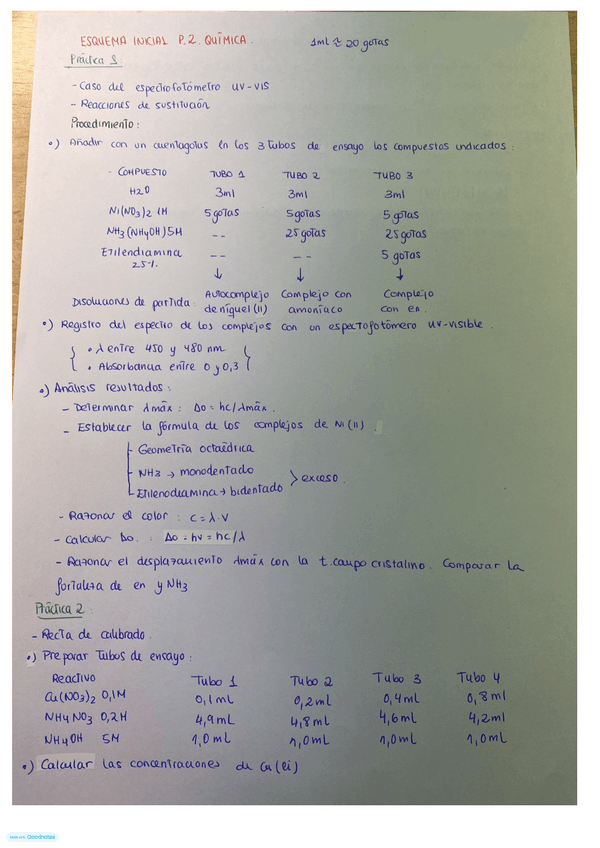 ESQUEMA INICIAL P.2. QUÍMICA. 1ml ≈ 20 gotas
Práctica 1
- Caso del espectrofotómetro UV-VIS
- Reacciones de sustitución
Procedimiento:
•) Añadir con un cuentagotas en los 3 tubos de ensayo los compuestos indicados:
- COMPUESTO TUBO 1 TUBO 2 TUBO 3
H2O 3ml 3ml 3ml
Ni(NO3)2 1M 5 gotas 5 gotas 5 gotas
NH3 (NH4OH) 5M -- 25 gotas 25 gotas
Etilendiamina -- -- 5 gotas
25%
↓ ↓ ↓
Disoluciones de partida: Autocomplejo Complejo con Complejo
de níquel (II) amoníaco con en.
•) Registro del espectro de los complejos con un espectofotómero UV-visible.
• λ entre 450 y 480 nm
• Absorbancia entre 0 y 0,3
•) Análisis resultados:
- Determinar λmáx: Δo = hc/λmáx.
- Establecer la fórmula de los complejos de Ni(II).
- Geometría octaédrica
- NH3 → monodentado
- Etilenodiamina → bidentado > exceso.
- Razonar el color: c = λ·ν
- Calcular Δo. : Δo = hν = hc/λ
- Razonar el desplazamiento λmáx con la t. campo cristalino. Comparar la
fortaleza de en y NH3
Práctica 2:
- Recta de calibrado.
•) Preparar tubos de ensayo:
Reactivo Tubo 1 Tubo 2 Tubo 3 Tubo 4
Cu(NO3)2 0,1M 0,1mL 0,2mL 0,4mL 0,8ml
NH4NO3 0,2M 4,9mL 4,8mL 4,6mL 4,2ml
NH4OH 5M 1,0mL 1,0mL 1,0mL 1,0mL
•) Calcular las concentraciones de Cu (ci)
Made with Goodnotes